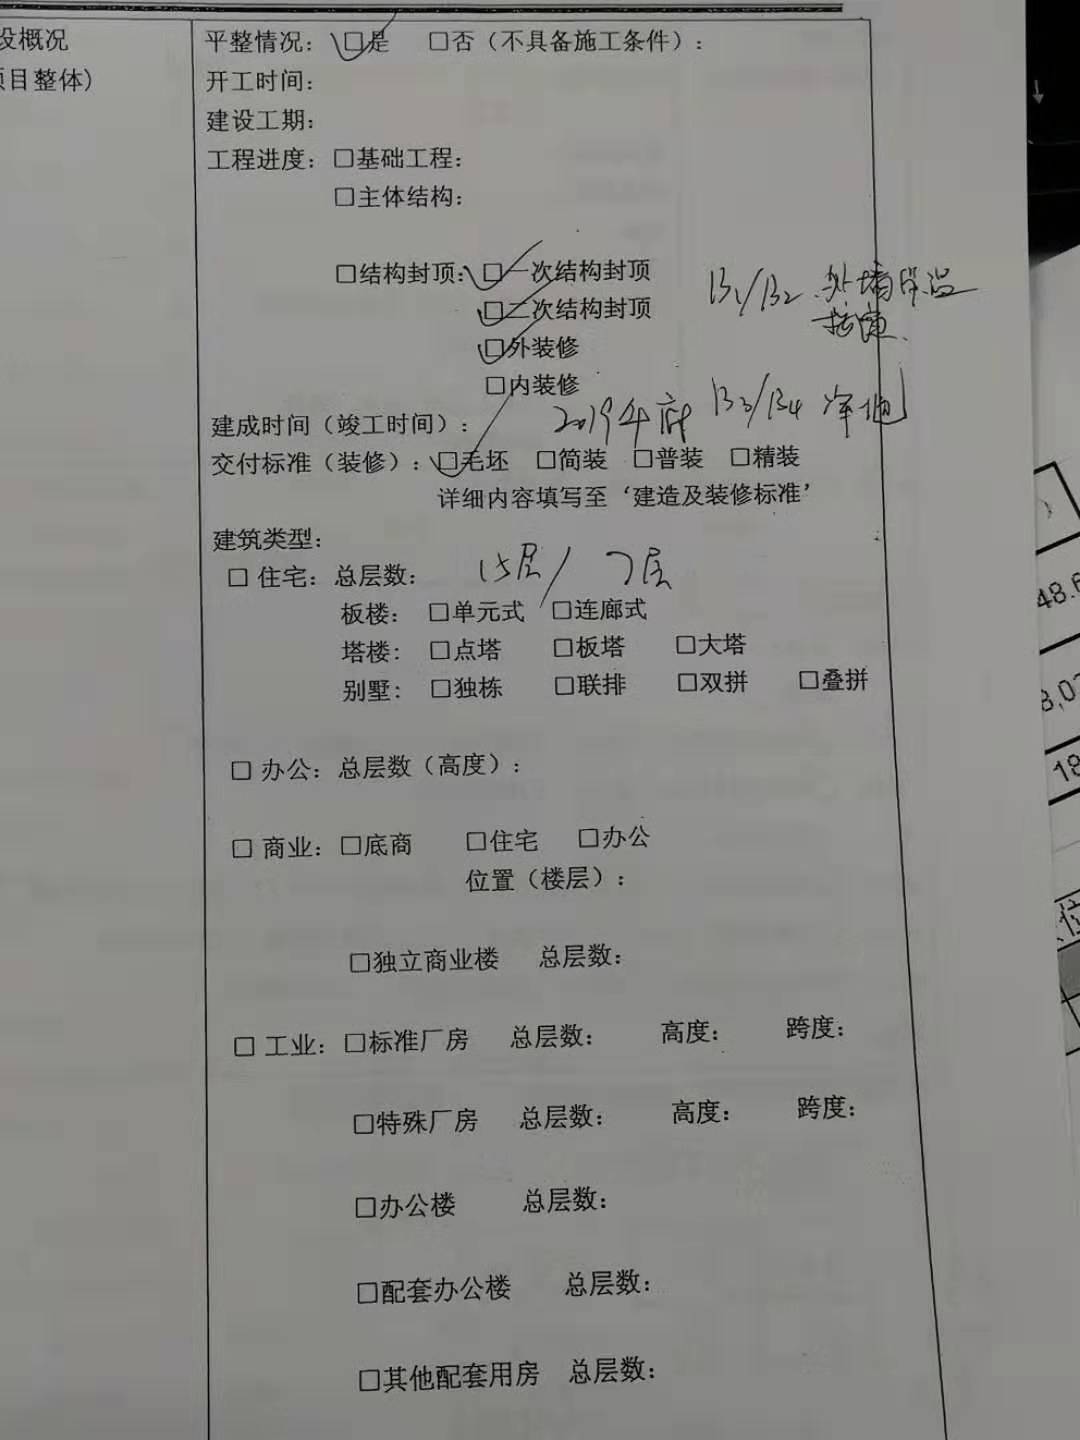 设概况
项目整体)
平整情况： ☑是 □否（不具备施工条件）：
开工时间：
建设工期：
工程进度： □基础工程：
□主体结构：
□结构封顶： ☑一次结构封顶
☑二次结构封顶
☑外装修
□内装修
B1/B2 外墙保温
建成时间（竣工时间）： 2019年底
B3/B4 净地
交付标准（装修）： ☑毛坯 □简装 □普装 □精装
详细内容填写至‘建造及装修标准’
建筑类型：
□ 住宅： 总层数： 15层/7层
板楼： □单元式 □连廊式
塔楼： □点塔 □板塔 □大塔
别墅： □独栋 □联排 □双拼 □叠拼
□ 办公： 总层数（高度）：
□ 商业： □底商 □住宅 □办公
位置（楼层）：
□独立商业楼 总层数：
□ 工业： □标准厂房 总层数： 高度： 跨度：
□特殊厂房 总层数： 高度： 跨度：
□办公楼 总层数：
□配套办公楼 总层数：
□其他配套用房 总层数：
48.6
18
位